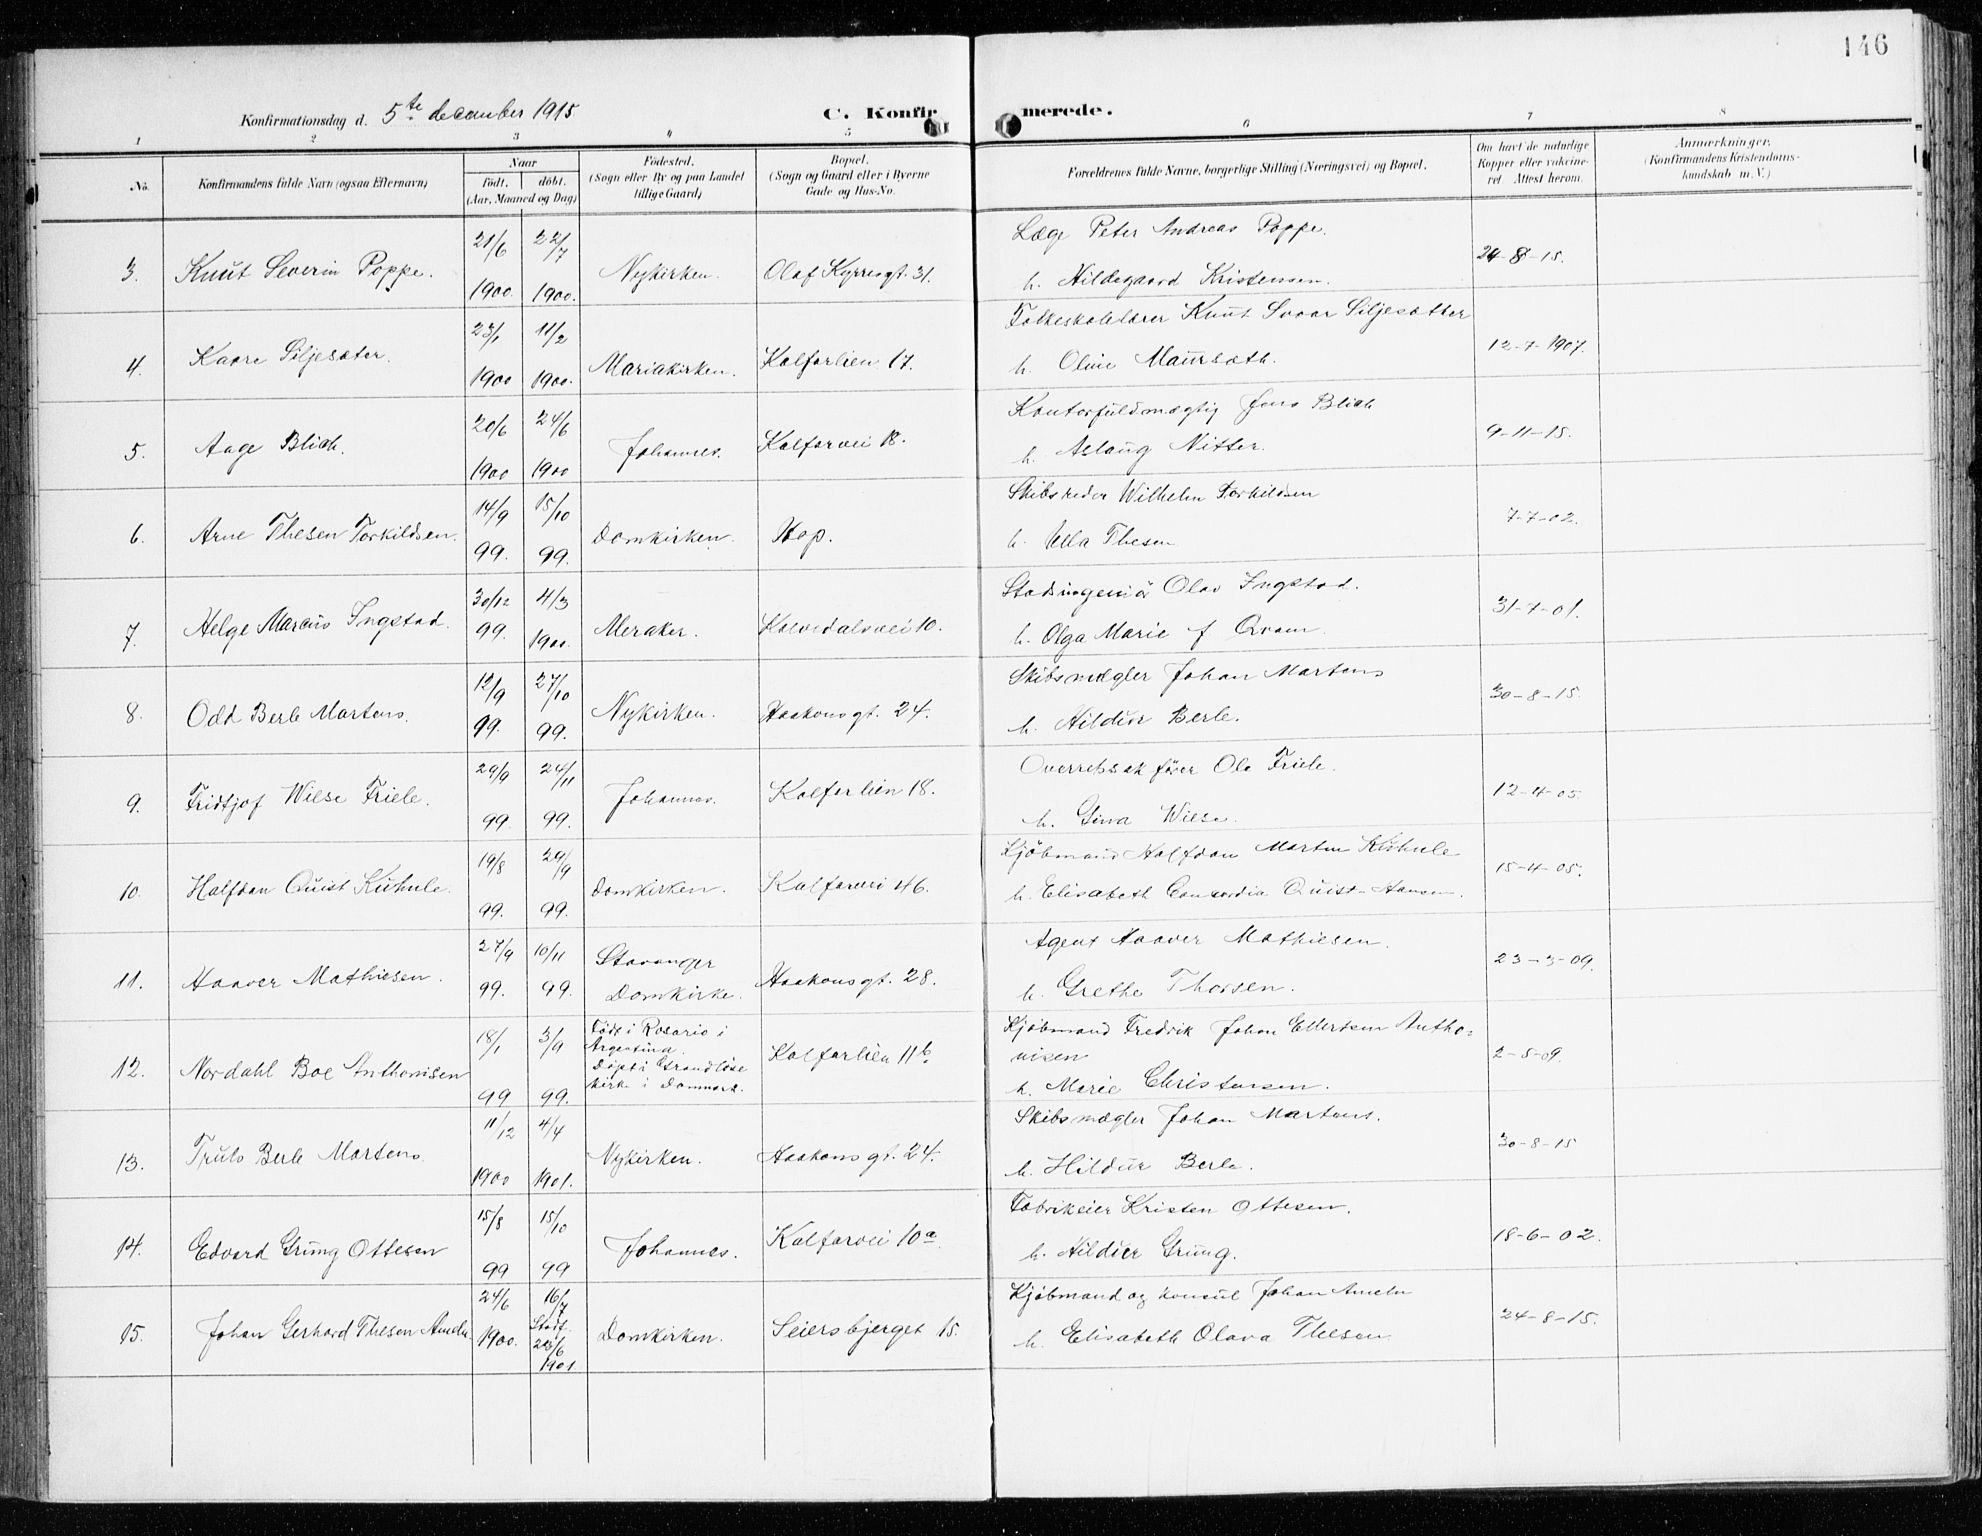 146
Konfirmationsdag d. 5te december 1915 C. Konfirmerede.
1 2 3 4 5 6 7 8
No. Konfirmandens fulde Navn (ogsaa Efternavn)
Naar
født. døbt.
(Aar, Maaned og Dag)
Fødested.
(Sogn eller By og paa Landet
tillige Gaard)
Bopæl.
(Sogn og Gaard eller i Byerne
Gade og Hus-No.
Forældrenes fulde Navne, borgerlige Stilling (Næringsvei) og Bopæl.
Om havt de naturlige
Kopper eller vakcine-
ret. Attest herom.
Anmærkninger.
(Konfirmandens Kristendoms-
kundskab m. V.)
21/6 22/7 Læge Peter Andreas Poppe.
3. Knut Severin Poppe. Nykirken. Olaf Kyrresgt. 31. 24-8-15.
1900. 1900. h. Hildegaard Kristensen.
23/1 11/2 Folkeskolelærer Knut Ivaar Siljesætter
4. Kaare Siljesæter. Mariakirken. Kalfarlien 17. 12-7-1907.
1900 1900. h. Oline Maurseth.
20/6 24/6 Kontorfuldmægtig Jens Blich
5. Aage Blich. Johannes. Kalfarvei 18. 9-11-15.
1900 1900 h. Aslaug Nitter.
14/9 15/10 Skibsreder Wilhelm Torkildsen
6. Arne Thesen Torkildsen. Domkirken. Hop. 7-7-02.
99. 99. h. Ulla Thesen
30/12 4/3 Stadsingeniør Olav Ingstad.
7. Helge Marcus Ingstad. Meraker. Kalvedalsvei 10. 31-7-01.
99. 1900. h. Olga Marie f Qvam.
12/9 27/10 Skibsmægler Johan Martens
8. Odd Berle Martens. Nykirken. Haakonsgt. 24. 30-8-15.
99. 99. h. Hildur Berle.
29/9 24/11 Overretssakfører Ole Friele.
9. Fridtjof Wiese Friele. Johannes. Kalfarlien 18. 12-4-05.
99. 99. h. Gina Wiese.
19/8 29/9 Kjøbmand Halfdan Marten Kuhnle
10. Halfdan Quist Kuhnle. Domkirken. Kalfarvei 46. 15-4-05.
99. 99. h. Elisabeth Concordia Quist-Hansen.
27/9 10/11 Stavanger Agent Haaver Mathiesen.
11. Haaver Mathiesen. Domkirke. Haakonsgt. 28. 23-3-09.
99. 99. h. Grethe Thorsen.
18/1 3/9 Født i Rosario i
Argentina.
Døpt i Grandløse
kirke i Danmark.
Kjøbmand Fredrik Johan Ellertsen Antho-
nisen
12. Nordahl Boe Anthonisen Kalfarlien 11b 2-8-09.
99 99. h. Marie Christensen.
11/12 4/4 Skibsmægler Johan Martens.
13. Truls Berle Martens. Nykirken. Haakonsgt. 24. 30-8-15
1900 1901. h. Hildur Berle.
15/8 15/10 Fabrikeier Kristen Ottesen.
14. Edvard Grung Ottesen Johannes. Kalfarvei 10a 18-6-02.
99 99 h. Hildur Grung.
24/6 16/7 Kjøbmand og konsul Johan Ameln
15. Johan Gerhard Thesen Ameln 1900. Stadf. Domkirken. Seiersbjerget 15. 24-8-15.
1901 h. Elisabeth Olava Thesen